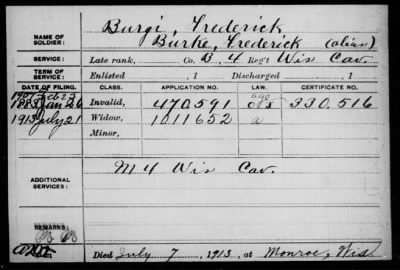 NAME OF SOLDIER: Burgi, Frederick
Burke, Frederick (alias)
SERVICE: Late rank, Co. B, 4 Reg't Wis Cav.
TERM OF SERVICE: Enlisted , 1 Discharged , 1
DATE OF FILING. CLASS. APPLICATION NO. LAW. CERTIFICATE NO.
1907 Feb 23
Jan 26 Invalid, 470.591 330.516
1913 July 21 Widow, 1011652 a
Minor,
M 4 Wis Cav.
ADDITIONAL SERVICES:
REMARKS:
Died July 7, 1913, at Monroe, Wis